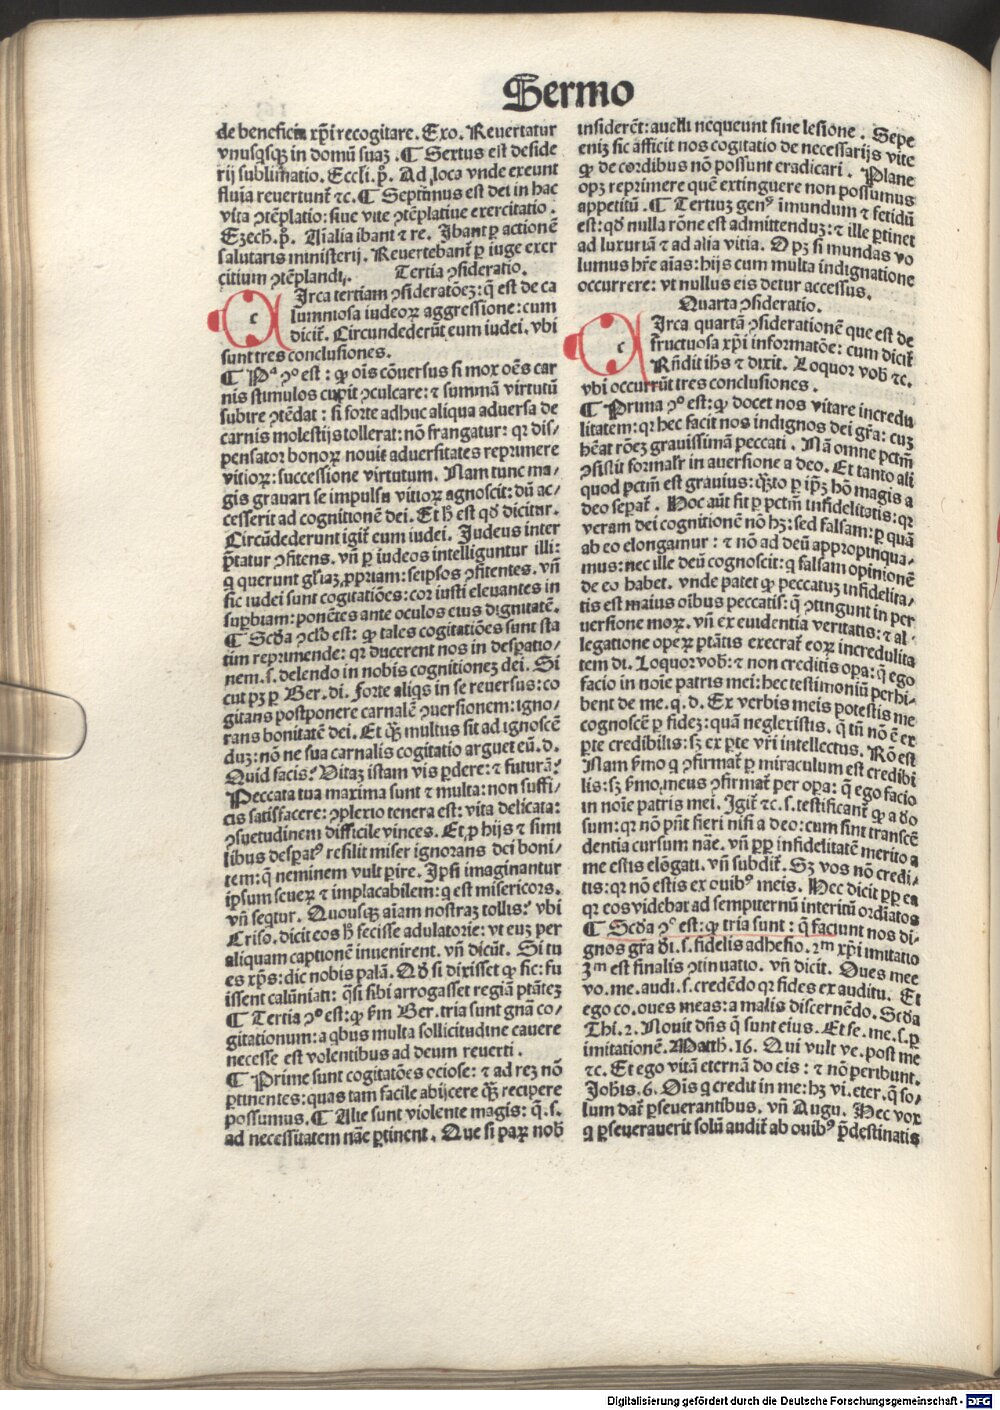 Sermo
de beneficiis xp̄i recogitare. Exo. Reuertatur
vnusqsqꝫ in domū suaꝫ. ¶ Sextus est deside
rij sublimatio. Eccli. pͦ. Ad loca vnde exeunt
fluīa reuertunt̄ ⁊c. ¶ Septimus est dei in hac
vita ꝯtēplatio: siue vite ꝯtēplatiue exercitatio.
Ezech. pͦ. Aīalia ibant ⁊ re. Ibant ꝑ actionē
salutaris ministerij. Reuertebant̄ ꝑ iuge exer
citium ꝯtēplandi. Tertia ꝯsideratio.
c Irca tertiam ꝯsideratōeꝫ: q̄ est de ca
lumniosa iudeoꝝ aggressione: cum
dicit̄. Circundederūt eum iudei. vbi
sunt tres conclusiones.
¶ Pᵃ ꝯͦ est: ꝙ oīs cōuersus si mox oēs car
nis stimulos cupit ꝯculcare: ⁊ summā virtutū
subire ꝯtēdat: si forte adhuc aliqua aduersa de
carnis molestijs tollerat: nō frangatur: qr dis⸗
pensator bonoꝝ nouit aduersitates reprimere
vitioꝝ: successione virtutum. Nam tunc ma⸗
gis grauari se impulsu vitioꝝ agnoscit: dū ac⸗
cesserit ad cognitionē dei. Et h̄ est qd̄ dicitur.
Circūdederunt igit̄ eum iudei. Iudeus inter
p̄tatur ꝯfitens. vn̄ ꝑ iudeos intelliguntur illi:
q querunt gl̄iaꝫ ꝓpriam: seipsos ꝯfitentes. vn̄
sic iudei sunt cogitatiōes: cor iusti eleuantes in
suꝑbiam: ponētes ante oculos eius dignitatē.
¶ Scd̄a ꝯclͦ est: ꝙ tales cogitatiōes sunt sta
tim reprimende: qr ducerent nos in desꝑatio⸗
nem. s. delendo in nobis cognitioneꝫ dei. Si
cut pꝫ ꝑ Ber. di. forte aliqs in se reuersus: co
gitans postponere carnalē ꝯuersionem: igno⸗
rans bonitatē dei. Et qꝫ multus sit ad ignoscē
duꝫ: nō ne sua carnalis cogitatio arguet eū. d.
Quid facis? Vitaꝫ istam vis ꝑdere: ⁊ futurā?
Peccata tua maxima sunt ⁊ multa: non suffi⸗
cis satisfacere: ꝯplexio tenera est: vita delicata:
ꝯsuetudinem difficile vinces. Et ꝓ hijs ⁊ simi
libus desꝑatꝰ resilit miser ignorans dei boni⸗
tem: q̄ neminem vult ꝑire. Ipsi imaginantur
ipsum seueꝝ ⁊ implacabilem: q est misericors.
vn̄ seqtur. Quousqꝫ aīam nostraꝫ tollis? vbi
Criso. dicit eos h̄ fecisse adulatorie: vt euꝫ per
aliquam captionē inuenirent. vn̄ dicūt. Si tu
es xp̄s: dic nobis palā. Qd̄ si dixisset ꝙ sic: fu
issent calūniati: q̄si sibi arrogasset regiā ptātēꝫ
¶ Tertia ꝯͦ est: ꝙ ẜm Ber. tria sunt gn̄a co⸗
gitationum: a qbus multa sollicitudine cauere
necesse est volentibus ad deum reuerti.
¶ Prime sunt cogitatōes ociose: ⁊ ad reꝫ nō
ꝑtinentes: quas tam facile abijcere qꝫ recipere
possumus. ¶ Alie sunt violente magis: q̄. s.
ad necessitatem nāe ꝑtinent. Que si paꝝ nob̄
insiderēt: auelli nequeunt sine lesione. Sepe
enīꝫ sic afficit nos cogitatio de necessarijs vite
ꝙ de cordibus nō possunt eradicari. Plane
opꝫ reprimere quē extinguere non possumus
appetitū. ¶ Tertiuꝫ genꝰ īmundum ⁊ fetidū
est: qd̄ nulla rōne est admittenduꝫ: ⁊ ille ꝑtinet
ad luxuriā ⁊ ad alia vitia. Opꝫ si mundas vo
lumus hr̄e aīas: hijs cum multa indignatione
occurrere: vt nullus eis detur accessus.
Quarta ꝯsideratio.
c Irca quartā ꝯsiderationē que est de
fructuosa xp̄i informatōe: cum dicit̄
Rn̄dit ihs̄ ⁊ dixit. Loquor vob̄ ⁊c.
vbi occurrūt tres conclusiones.
¶ Prima ꝯͦ est: ꝙ docet nos vitare incredu
litatem: qr hec facit nos indignos dei gr̄a: cuꝫ
hēat rōeꝫ grauissimā peccati. Nā omne pctm̄
ꝯsistit formalr̄ in auersione a deo. Et tanto ali
quod pctm̄ est grauius: qꝫto ꝑ ip̄ꝫ hō magis a
deo seꝑat̄. Hoc aūt fit ꝑ pctm̄ infidelitatis: qr
veram dei cognitionē nō hꝫ: sed falsam: ꝑ quā
ab eo elongamur: ⁊ nō ad deū appropinqua⸗
mus: nec ille deū cognoscit: q falsam opinionē
de eo habet. vnde patet ꝙ peccatuꝫ infidelita⸗
tis est maius oībus peccatis: q̄ ꝯtingunt in per
uersione moꝝ. vn̄ ex euidentia veritatis: ⁊ al⸗
legatione opeꝝ ptātis execrat̄ eoꝝ incredulita
tem di. Loquor vob̄: ⁊ non creditis oꝑa: q̄ ego
facio in noīe patris mei: hec testimoniū perhi⸗
bent de me. q. d. Ex verbis meis potestis me
cognoscē ꝑ fideꝫ: quā neglexistis. q̄ tn̄ nō ē ex
ꝑte credibilis: sꝫ ex ꝑte vr̄i intellectus. Rō est
Nam ẜmo q ꝯfirmat̄ ꝑ miraculum est credibi
lis: sꝫ ẜmo meus ꝯfirmat̄ per oꝑa: q̄ ego facio
in noīe patris mei. Igit̄ ⁊c. s. testificant̄ ꝙ a do
sum: qr nō pn̄t fieri nisi a deo: cum sint transcē
dentia cursum nāe. vn̄ ꝓpꝑ infidelitatē merito a
me estis elōgati. vn̄ subdit̄. Sꝫ vos nō credi⸗
tis: qr nō estis ex ouibꝰ meis. Hec dicit ꝓpꝑ ea
qr eos videbat ad sempiternū interitū ordīatos
¶ Scd̄a ꝯͦ est: ꝙ tria sunt: q̄ faciunt nos di⸗
gnos gr̄a dī. s. fidelis adhesio. 2ᵐ xp̄i imitatio
3ᵐ est finalis ꝯtinuatio. vn̄ dicit. Oues mee
vo. me. audi. s. credēdo qr fides ex auditu. Et
ego co. oues meas: a malis discernēdo. Scd̄a
Thi. 2. Nouit dn̄s q̄ sunt eius. Et se. me. s. ꝑ
imitationē. Matth. 16. Qui vult ve. post me
⁊c. Et ego vitā eternā do eis: ⁊ nō peribunt.
Johis. 6. Oīs q credit in me: hꝫ vi. eter. q̄ so⸗
lum dat̄ ꝑseuerantibus. vn̄ Augu. Hec vox
q ꝑseuerauerit solū audit̄ ab ouibꝰ p̄destinatis
Digitalisierung gefördert durch die Deutsche Forschungsgemeinschaft - DFG